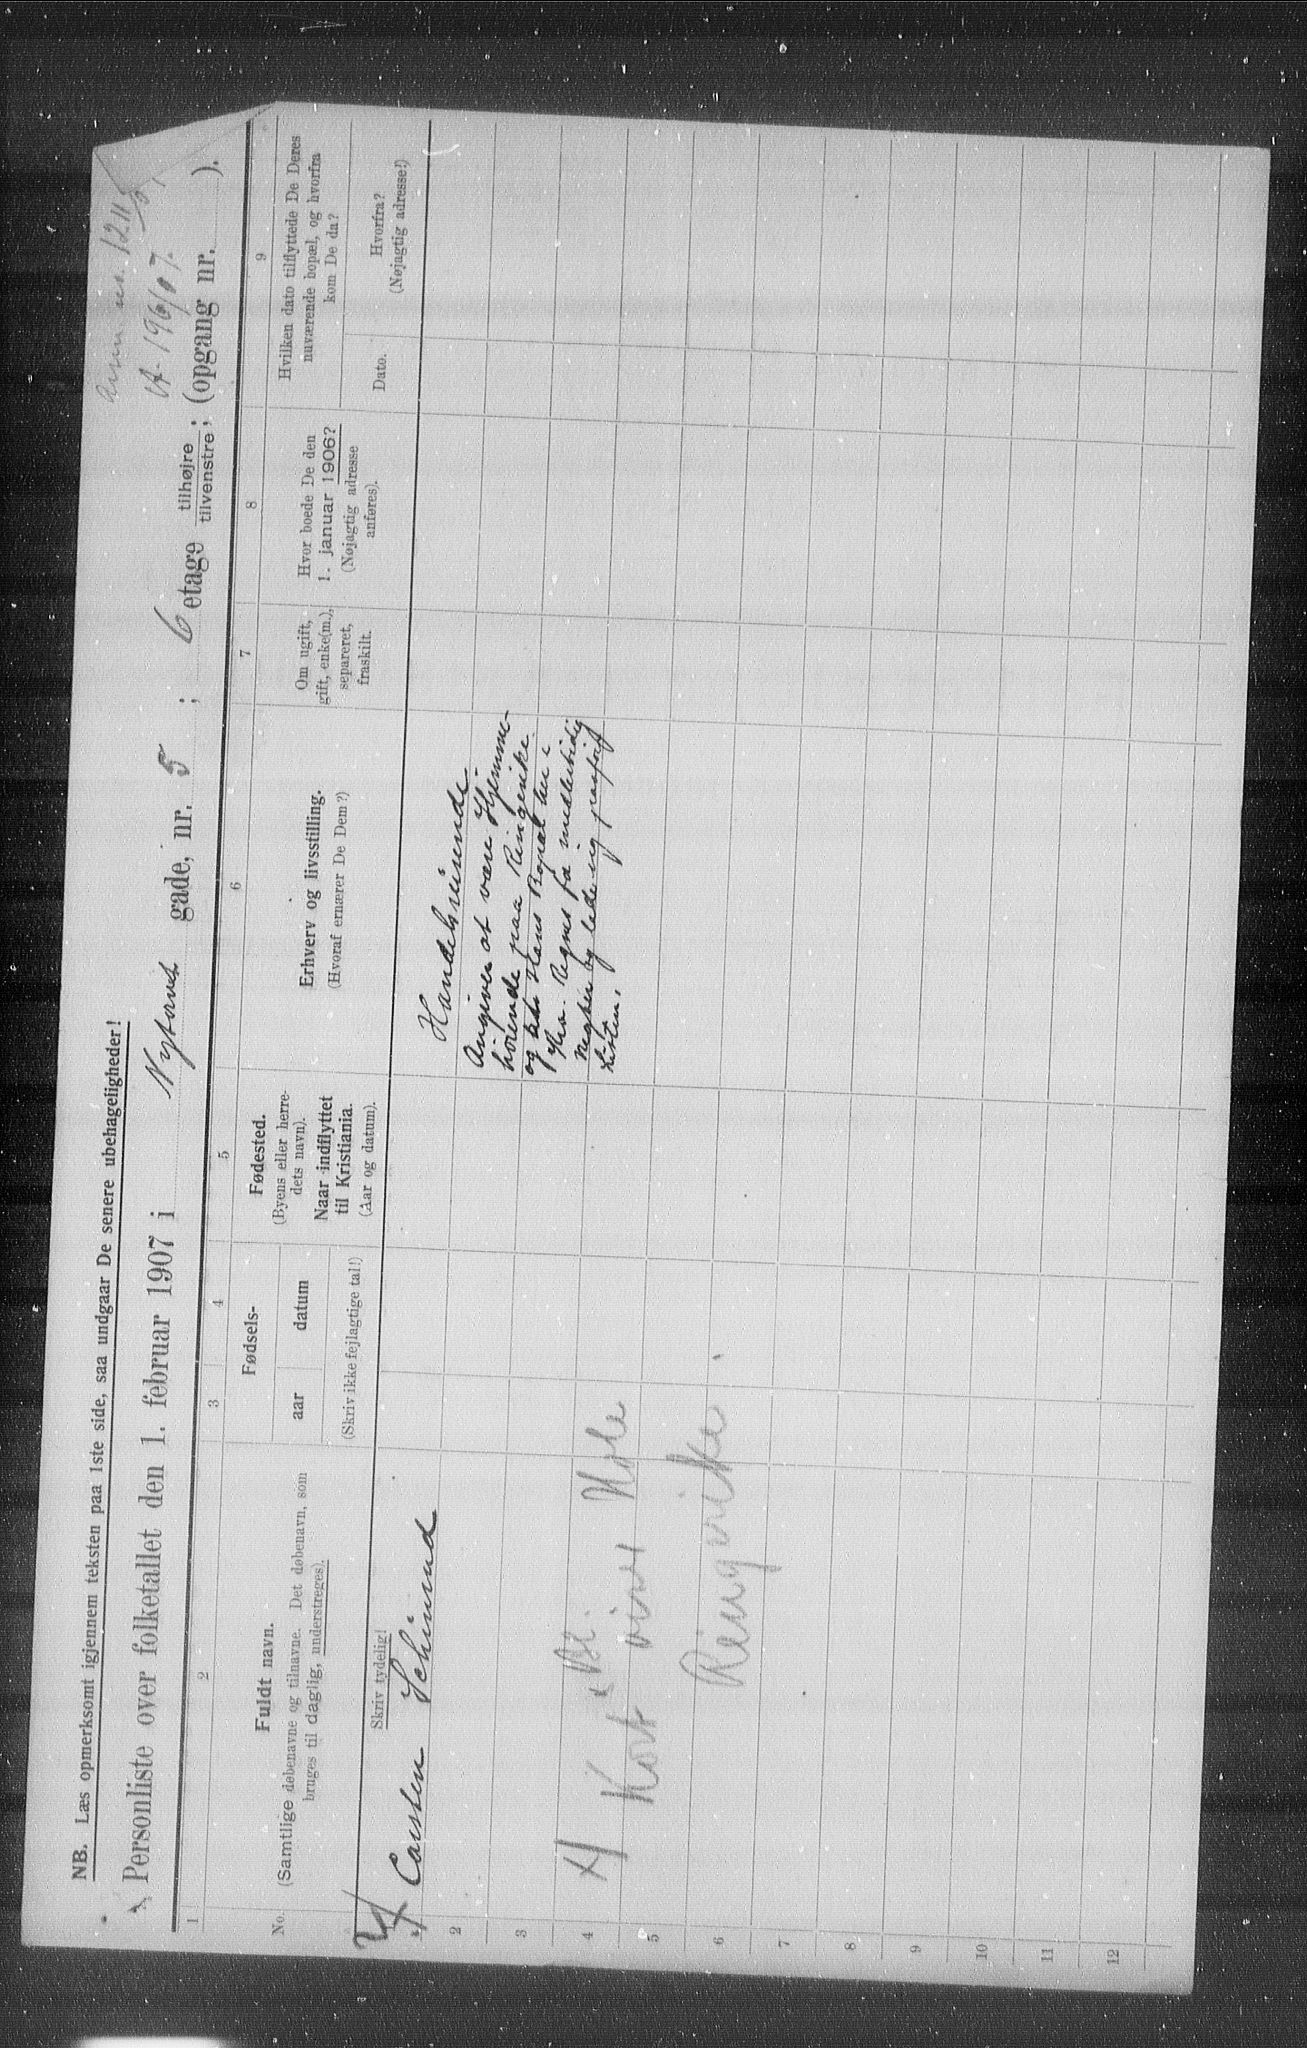 Anm. no. 1211/07.
A- 196/07.
NB. Læs opmerksomt igjennem teksten paa 1ste side, saa undgaar De senere ubehageligheder!
Personliste over folketallet den 1. februar 1907 i Nytorvet gade, nr. 5; 6 etage tilhøjre; tilvenstre; (opgang nr. ).
1 2 3 4 5 6 7 8 9
No.
Fuldt navn.
(Samtlige døbenavne og tilnavne. Det døbenavn, som
bruges til daglig, understreges).
Skriv tydelig!
Fødsels-
aar datum
(Skriv ikke fejlagtige tal!)
Fødested.
(Byens eller herre-
dets navn).
Naar indflyttet
til Kristiania.
(Aar og datum).
Erhverv og livsstilling.
(Hvoraf ernærer De Dem?)
Om ugift,
gift, enke(m.),
separeret,
fraskilt.
Hvor boede De den
1. januar 1906?
(Nøjagtig adresse
anføres).
Hvilken dato tilflyttede De Deres
nuværende bopæl, og hvorfra
kom De da?
Dato.
Hvorfra?
(Nøjagtig adresse!)
Carsten Schmud
Handelsreisende
Angiver at være Hjemme-
hörende paa Ringerike
og Hans Bopæl her i
Kra. Regnes for midlertidig
Negter og lade sig paaføre
Listen.
x) Kort viser Hole
Ringerike.
2
3
4
5
6
7
8
9
10
11
12